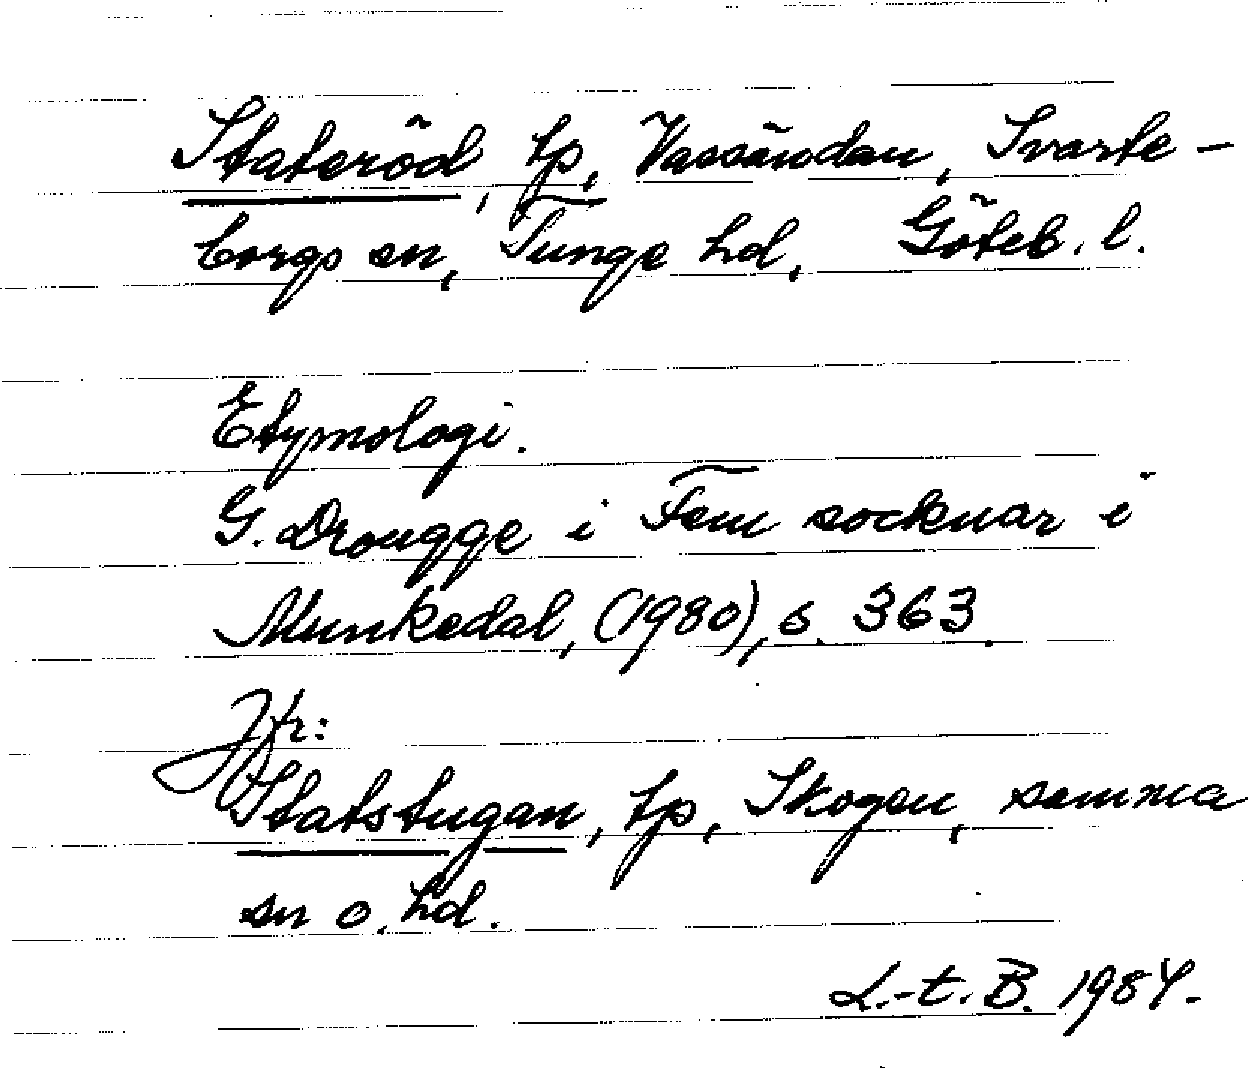 Stateröd, tp, Vassändan, Svarte-
borgs sn, Tunge hd, Göteb. l.
Etymologi.
G. Drougge i Fem socknar i
Munkedal, (1980), s. 363.
Jfr:
Statstugan, tp, Skogen, samma
sn o. hd.
L.-t. B. 1984.